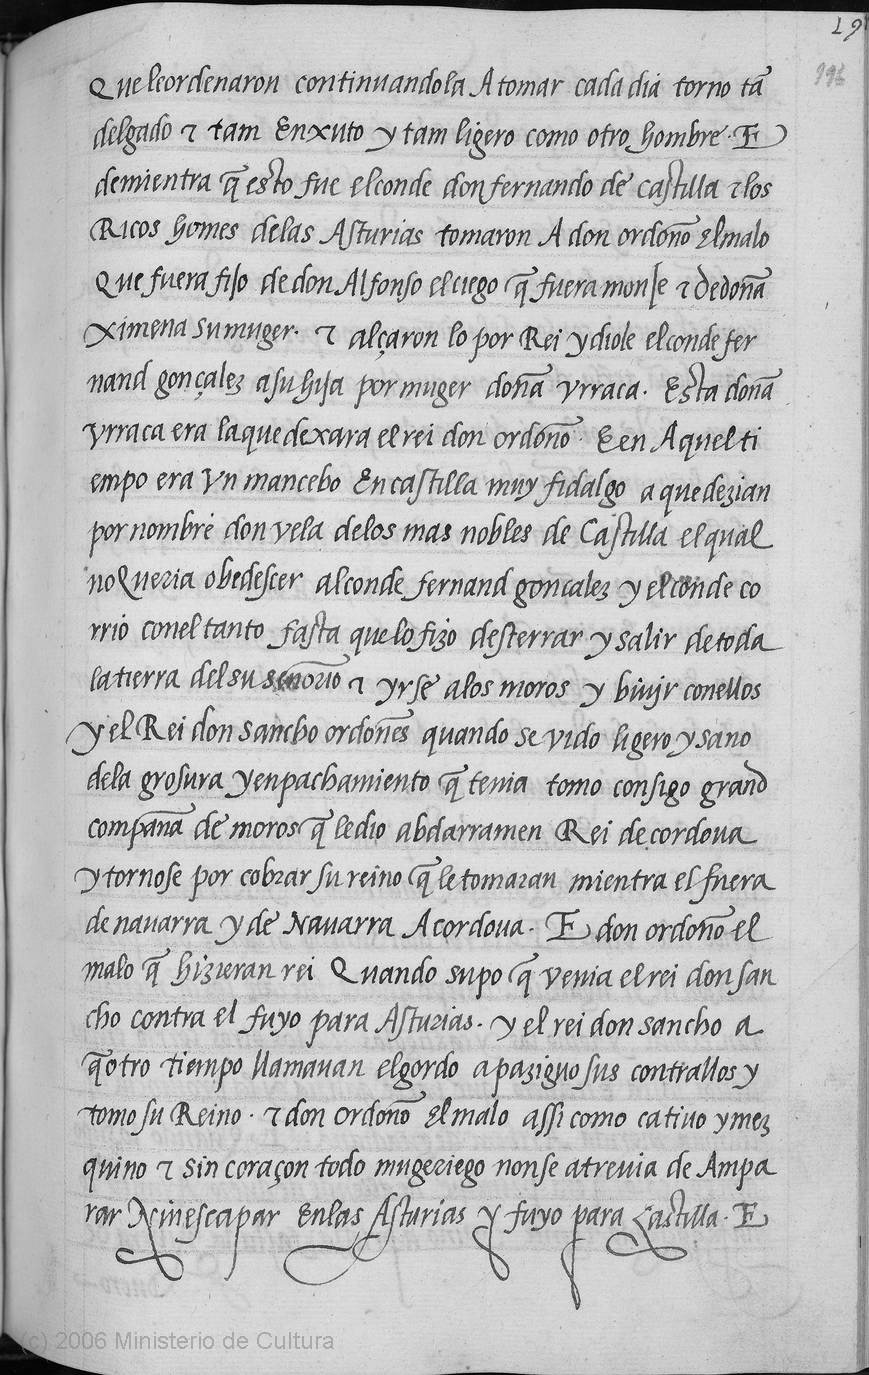 19
196
Que leordenaron continuandola A tomar cada dia torno tã
delgado ⁊ tam Enxuto y tam ligero como otro hombre · E
demientra q̃ esto fue el conde don fernando de castilla ⁊ los
Ricos homes delas Asturias tomaron A don ordoño El malo
Que fuera fijo de don Alfonso el ciego q̃ fuera monje ⁊ de doña
Ximena su muger · ⁊ alçaron lo por Rei y diole el conde fer
nand gonçalez a su hija por muger doña Vrraca · Esta doña
Vrraca era la que dexara el rei don ordoño · E en Aquel ti
empo era Vn mancebo En castilla muy fidalgo a que dezian
por nombre don vela delos mas nobles de Castilla el qual
no Queria obedescer al conde fernand goncalez y el conde co
rrio con el tanto fasta que lo fizo desterrar y salir de toda
la tierra del su señorio ⁊ yrse a los moros y biuir conellos
y el Rei don sancho ordoñes quando se vido ligero y sano
dela grosura y enpachamiento q̃ tenia tomo consigo grand
compaña de moros q̃ le dio abdarramen Rei de cordoua
y tornose por cobrar su reino q̃ le tomaran mientra el fuera
de nauarra y de Navarra A cordoua · E don ordoño el
malo q̃ hizieran rei Quando supo q̃ venia el rei don san
cho contra el fuyo para Asturias · y el rei don sancho a
q̃ otro tiempo llamauan el gordo apaziguo sus contrallos y
tomo su Reino · ⁊ don ordoño El malo assi como catiuo y mez
quino ⁊ sin coraçon todo mugeriego non se atreuia de Ampa
rar Nin escapar En las Asturias y fuyo para Castilla · E
(c) 2006 Ministerio de Cultura